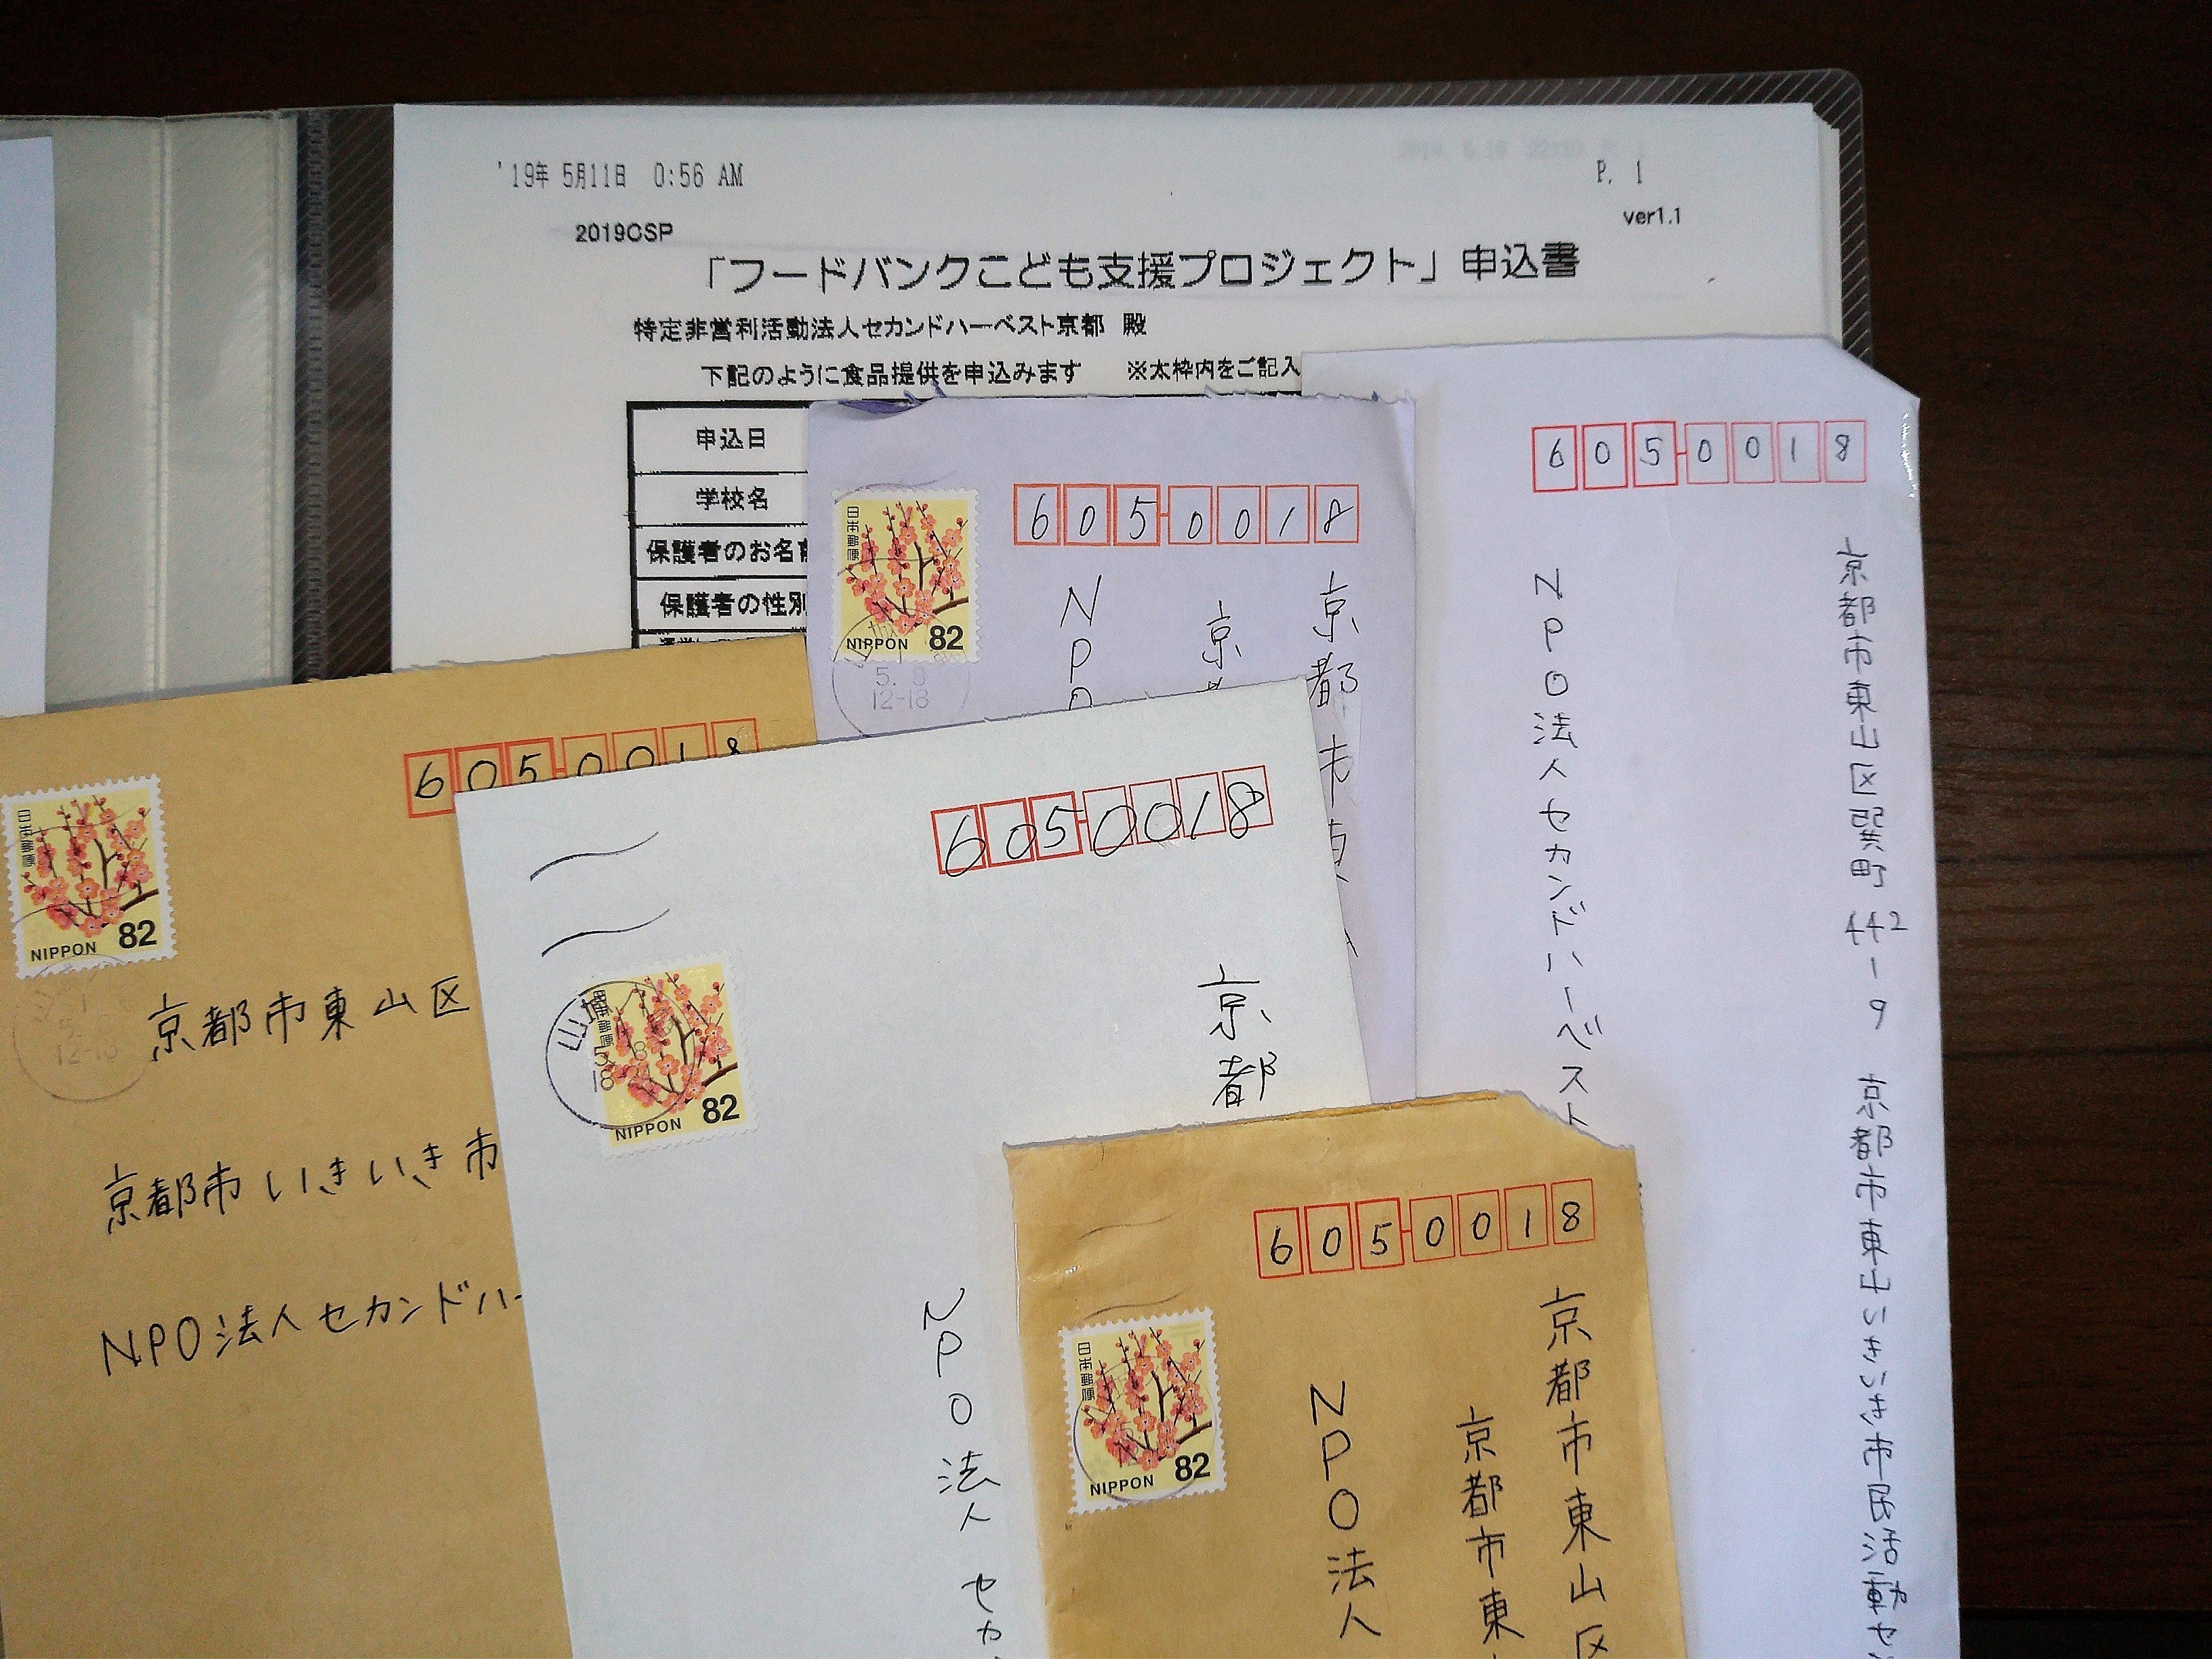 '19年 5月11日 0:56 AM
P. 1
ver1.1
2019CSP
「フードバンクこども支援プロジェクト」申込書
特定非営利活動法人セカンドハーベスト京都 殿
下記のように食品提供を申込みます ※太枠内をご記入
申込日
学校名
保護者のお名前
保護者の性別
605-0018
京都市東山区巽町442-9 京都市東山いきいき市民活動セン
NPO法人セカンドハーベスト
日本郵便
NIPPON 82
5. 9
12-18
605-0018
京都市東
京
NPO
日本郵便
NIPPON 82
12-18
605-0018
京都市東山区
京都市いきいき市
NPO法人セカンドハー
日本郵便
NIPPON 82
山城
18
605-0018
京都
NPO法人 セカ
日本郵便
NIPPON 82
605-0018
京都市東山区
京都市東
NPO法人